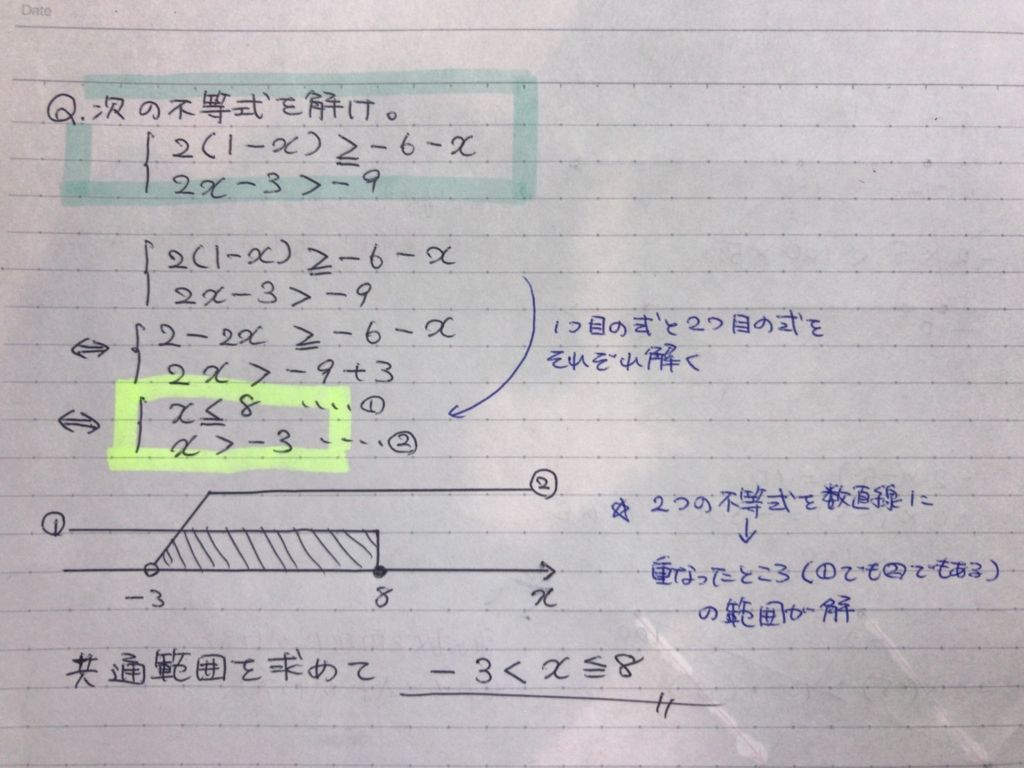 Date
Q.次の不等式を解け。
2(1-x)≧-6-x
2x-3>-9
2(1-x)≧-6-x
2x-3>-9
⇔ 2-2x≧-6-x
2x>-9+3
1つ目の式と2つ目の式を
それぞれ解く
⇔ x≦8 ‥‥①
x>-3 ‥‥②
②
①
-3 8 x
☆ 2つの不等式を数直線に
↓
重なったところ(①でも②でもある)
の範囲が解
共通範囲を求めて -3<x≦8